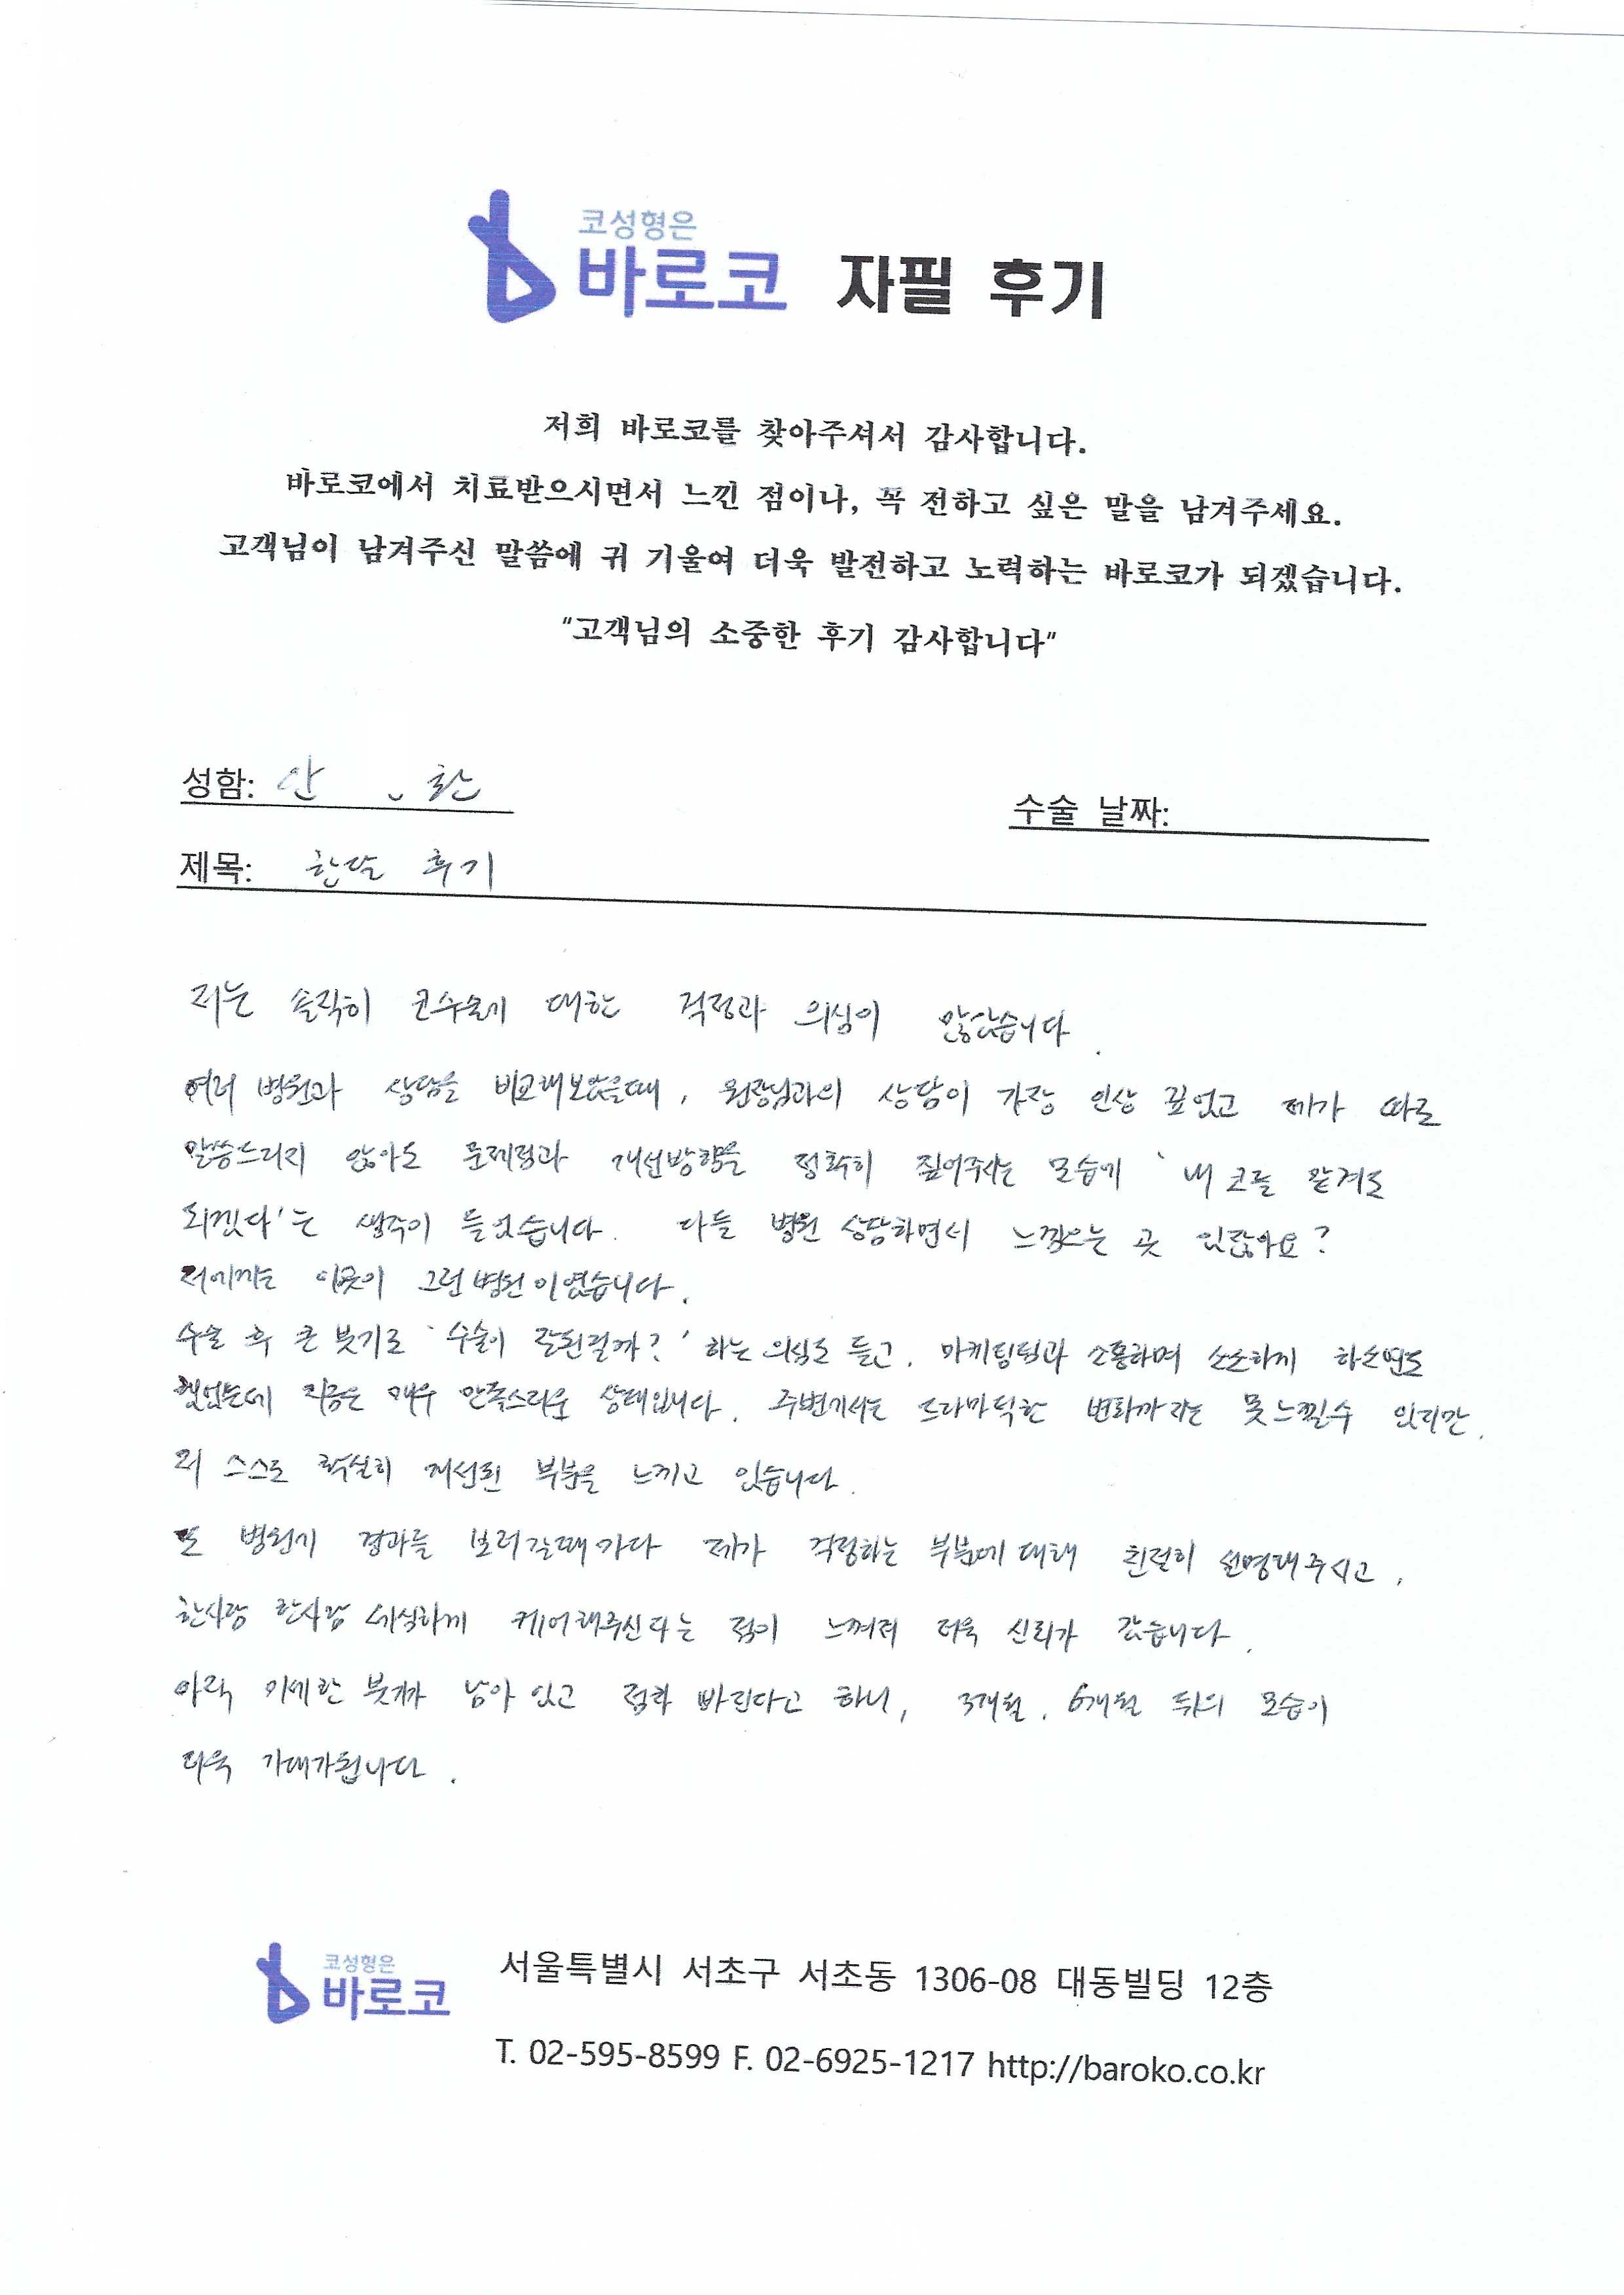 코성형은
바로코 자필 후기
저희 바로코를 찾아주셔서 감사합니다.
바로코에서 치료받으시면서 느낀 점이나, 꼭 전하고 싶은 말을 남겨주세요.
고객님이 남겨주신 말씀에 귀 기울여 더욱 발전하고 노력하는 바로코가 되겠습니다.
"고객님의 소중한 후기 감사합니다"
성함: 안 환
수술 날짜:
제목: 한달 후기
저는 솔직히 코수술에 대한 걱정과 의심이 많았습니다.
여러 병원과 상담을 비교해보았을때, 원장님과의 상담이 가장 인상 깊었고 제가 따로
말씀드리지 않아도 문제점과 개선방향을 정확히 짚어주시는 모습에 '내 코를 맡겨도
되겠다'는 생각이 들었습니다. 다들 병원 상담하면서 느낌오는 곳 있잖아요?
저에게는 이곳이 그런 병원이였습니다.
수술 후 큰 붓기로 '수술이 잘된걸까?' 하는 의심도 들고, 마케팅팀과 소통하며 소소하게 하소연도
했었는데 지금은 매우 만족스러운 상태입니다. 주변에서는 드라마틱한 변화까지는 못느낄수 있지만,
저 스스로 확실히 개선된 부분을 느끼고 있습니다.
또 병원에 경과를 보러갈때마다 제가 걱정하는 부분에 대해 친절히 설명해주시고,
한사람 한사람 세심하게 케어해주신다는 점이 느껴져 더욱 신뢰가 갔습니다.
아직 미세한 붓기가 남아 있고 점차 빠진다고 하니, 3개월, 6개월 뒤의 모습이
더욱 기대가됩니다.
코성형은
바로코
서울특별시 서초구 서초동 1306-08 대동빌딩 12층
T. 02-595-8599 F. 02-6925-1217 http://baroko.co.kr